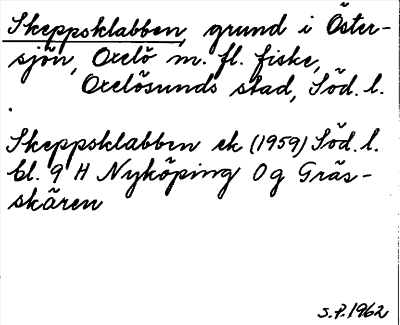 Skeppsklabben, grund i Öster-
sjön, Oxelö m. fl. fiske,
Oxelösunds stad, Söd. l.
Skeppsklabben ek (1959) Söd. l.
bl. 9 H Nyköping Og Gräs-
skären
S.P. 1962